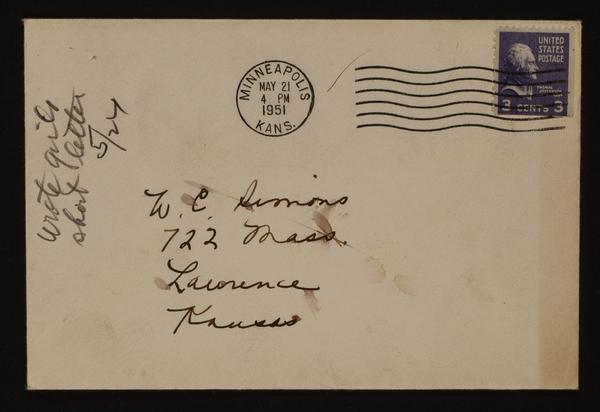 MINNEAPOLIS
MAY 21
4 PM
1951
KANS.
UNITED
STATES
POSTAGE
THOMAS
JEFFERSON
3 CENTS 3
wrote girls
short letter
5/24
W. C. Simons
722 Mass.
Lawrence
Kansas